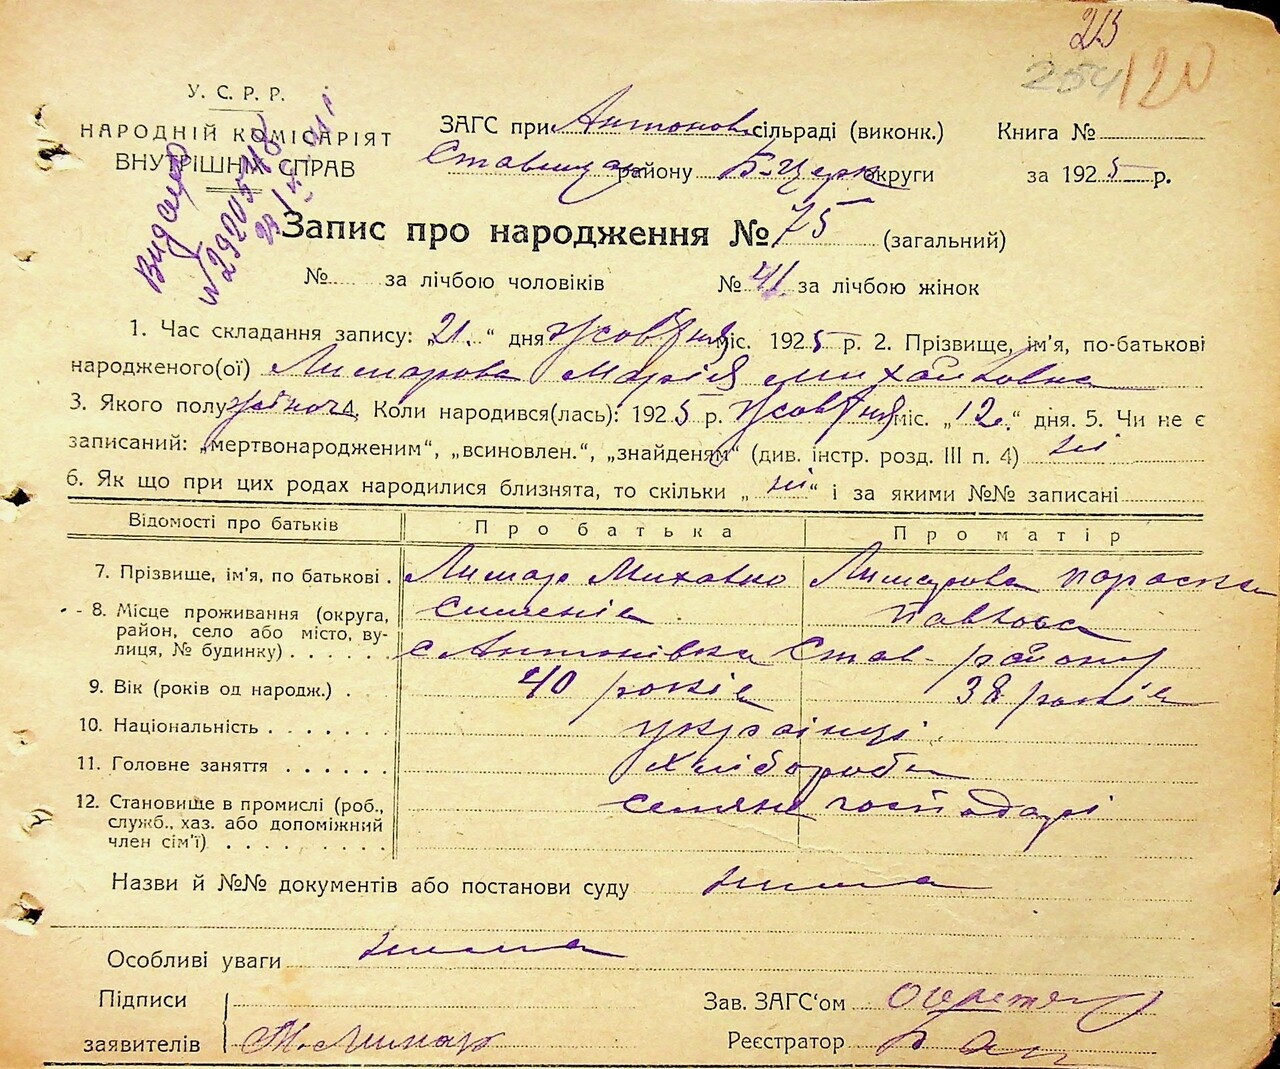 213
254 120
У. С. Р. Р.
НАРОДНІЙ КОМІСАРІЯТ
ВНУТРІШНІХ СПРАВ
ЗАГС при Антонов сільраді (виконк.) Книга №
Ставищан району Б-Церк округи за 1925 р.
Запис про народження № 75 (загальний)
№ за лічбою чоловіків № 41 за лічбою жінок
1. Час складання запису: „21." дня Жовтня міс. 1925 р. 2. Прізвище, ім'я, по-батькові
народженого(ої) Лимарова Марія Михайловна
3. Якого полу жіноч 4. Коли народився(лась): 1925 р. Жовтня міс. „12." дня. 5. Чи не є
записаний: „мертвонародженим", „всиновлен.", „знайденям" (див. інстр. розд. III п. 4) ні
6. Як що при цих родах народилися близнята, то скільки „ні" і за якими №№ записані
Відомості про батьків Про батька Про матір
7. Прізвище, ім'я, по батькові . Лимар Михайло Лимарова Параска
8. Місце проживання (округа, Семенів Павлова
район, село або місто, ву-
лиця, № будинку) . . . . . с Антонівка Став. району
9. Вік (років од народж.) . 40 років 38 років
10. Національність . . . . . . . українці
11. Головне заняття . . . . . . хлібороби
12. Становище в промислі (роб., селяне господарі
служб., хаз. або допоміжний
член сім'ї) . . . . . . . . .
Назви й №№ документів або постанови суду нима
Особливі уваги нима
Підписи Зав. ЗАГС'ом
заявителів М. Лимар Реєстратор